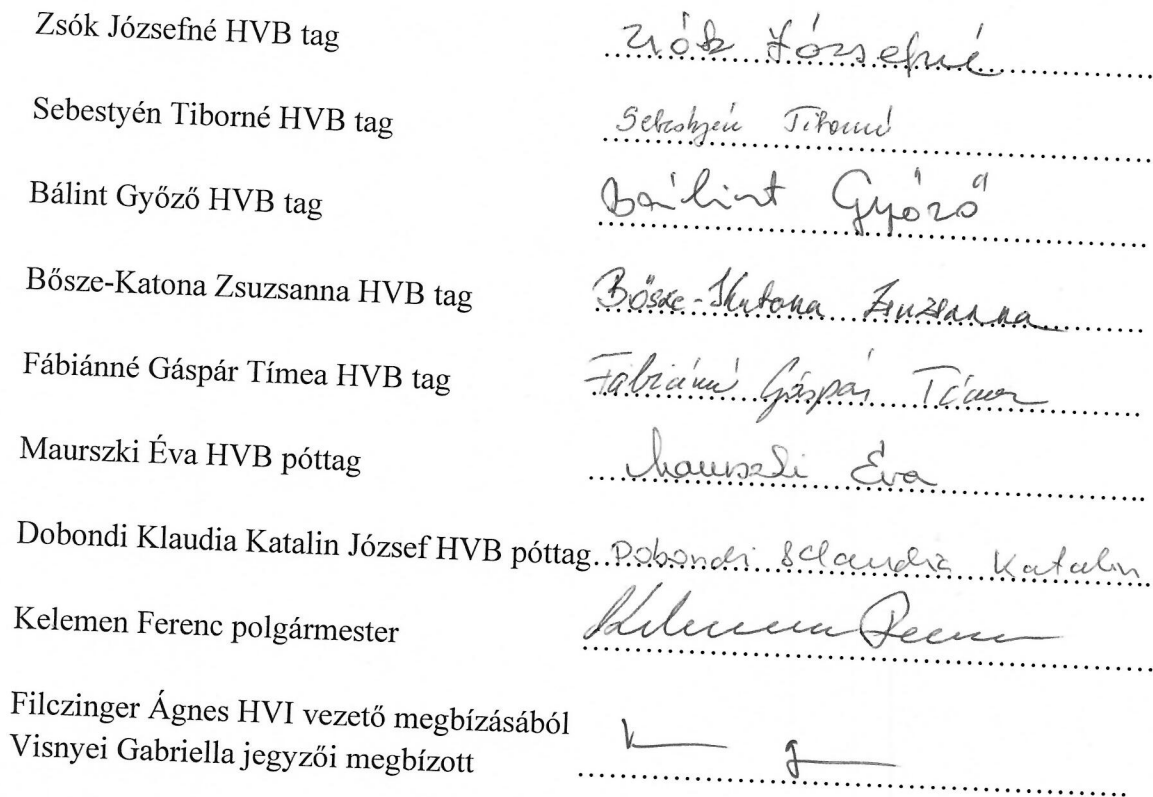 Zsók Józsefné HVB tag Zsók Józsefné
Sebestyén Tiborné HVB tag Sebestyén Tiborné
Bálint Győző HVB tag Bálint Győző
Bősze-Katona Zsuzsanna HVB tag Bősze-Katona Zsuzsanna
Fábiánné Gáspár Tímea HVB tag Fábiánné Gáspár Tímea
Maurszki Éva HVB póttag Maurszki Éva
Dobondi Klaudia Katalin József HVB póttag Dobondi Klaudia Katalin
Kelemen Ferenc polgármester Kelemen Ferenc
Filczinger Ágnes HVI vezető megbízásából
Visnyei Gabriella jegyzői megbízott